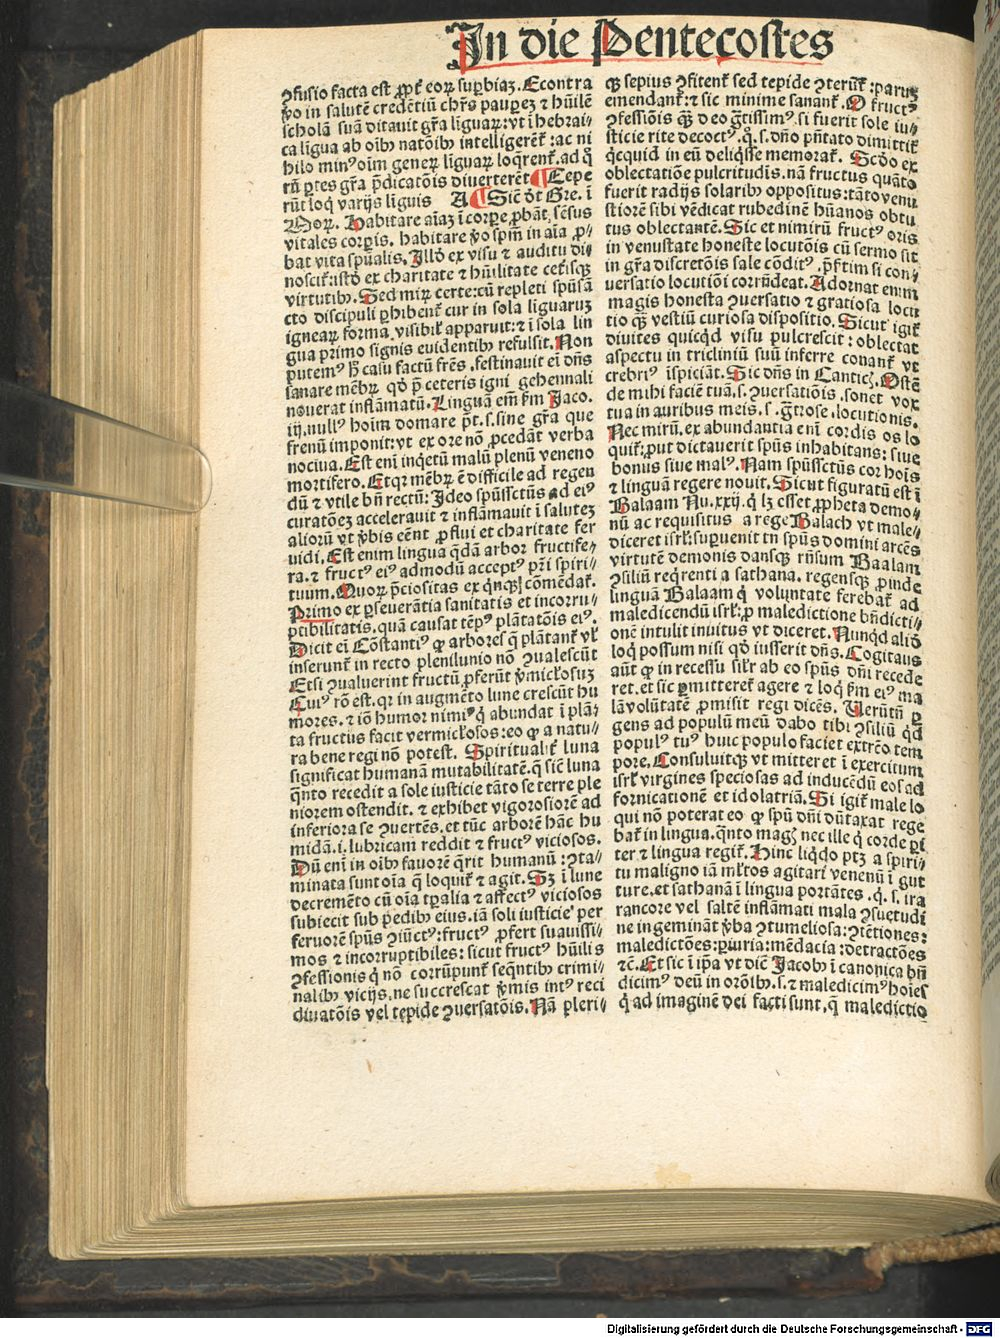 In die Pentecostes
ꝯfusio facta est ꝓpt̄ eoꝝ suꝑbiaȝ. Econtra
ꝟo in salutē credētiū chr̄s pauꝑeȝ ⁊ hūilē
scholā suā ditauit gr̄a linguaꝝ: vt ī hebrai⸗
ca līgua ab oīb⁹ natōib⁹ intelligerēt̄ : ac ni
hilo min⁹ oīm geneꝝ līguaꝝ loq̄rent̄. ad q̄
rū ꝑtes gr̄a p̄dicatōis diuerterēt ¶ Cepe
rūt loq̄ varijs līguis A ¶ Sic̄ dt̄ Gre. ī
Moꝝ. Habitare aīaȝ ī corꝑe ꝓbāt, sēsus
vitales corꝑis. habitare ꝟo spm̄ in aīa ꝓ⸗
bat vita spūalis. Illd̄ ex visu ⁊ auditu di⸗
noscit̄: istd̄ ex charitate ⁊ hūilitate cet̄isqꝫ
virtutib⁹. Sed miꝝ certe: cū repleti spūsā
cto discipuli ꝑhibent̄ cur in sola līguaruȝ
igneaꝝ forma visibil̄r apparuit: ⁊ ī sola lin
gua primo signis euidentib⁹ refulsit. Non
putem⁹ h̄ casu factū fr̄es. festinauit ei dn̄s
sanare mēbꝝ qd̄ p̄ ceteris igni gehennali
nouerat inflāmatū. Linguā em̄ km̄ Jaco.
iij. null⁹ hoīm domare pt̄. s. sine gr̄a que
frenū imponit: vt ex ore nō ꝓcedāt verba
nociua. Est enī inq̄etū malū plenū veneno
mortifero. Etqꝛ mēbꝝ ē difficile ad regen
dū ⁊ vtile bn̄ rectū: Ideo spūssctūs ad ei⁹
curatōeȝ accelerauit ⁊ inflāmauit ī saluteȝ
aliorū vt ꝟbis eēnt ꝓflui et charitate fer
uidi. Est enim lingua q̄dā arbor fructife⸗
ra. ⁊ fruct⁹ ei⁹ admodū accept⁹ pr̄i spiri⸗
tuum. Quoꝝ p̄ciositas ex q̄nqꝫ cōmēdat̄.
Primo ex ꝑseuerātia sanitatis et incorru⸗
ptibilitatis. quā causat tēp⁹ plātatōis ei⁹.
Dicit ei Cōstanti⁹ ꝙ arbores q̄ plātant̄ vl̄
inserunt̄ in recto plenilunio nō ꝯualescūt
Etsi ꝯualuerint fructū ꝓferūt ꝟmicl̄osuȝ
Cui⁹ rō est. qꝛ in augmēto lune crescūt hu
mores. ⁊ iō humor nimi⁹ q̄ abundat ī plā⸗
ta fructus facit vermicl̄osos: eo ꝙ a natu⸗
ra bene regi nō potest. Spiritualit̄ luna
significat humanā mutabilitatē. q̄ sic̄ luna
q̄nto recedit a sole iusticie tāto se terre ple
niorem ostendit. ⁊ exhibet vigorosiorē ad
inferiora se ꝯuertēs. et tūc arborē hāc hu
midā. i. lubricam reddit ⁊ fruct⁹ viciosos.
Dū enī in oīb⁹ fauorē q̄rit humanū : ꝯta⸗
minata sunt oīa q̄ loquit̄ ⁊ agit. Sȝ ī lune
decremēto cū oīa tꝑalia ⁊ affect⁹ viciosos
subiecit sub pedib⁹ eius. iā soli iusticie per
feruorē spūs ꝯiūct⁹: fruct⁹ ꝓfert suauissi⸗
mos ⁊ incorruptibiles: sicut fruct⁹ hūilis
ꝯfessionis q̄ nō corrūpunt̄ seq̄ntib⁹ crimi⸗
nalib⁹ vicijs. ne succrescat ꝟmis int⁹ reci
diuatōis vel tepide ꝯuersatōis. Nā pleri⸗
qꝫ sepius ꝯfitent̄ sed tepide ꝯterūt̄ : paruȝ
emendant̄: ⁊ sic minime sanant̄. O fruct⁹
ꝯfessiōis qꝫ deo gr̄tissim⁹. si fuerit sole iu⸗
sticie rite decoct⁹. q̄. s. dn̄o pn̄tato dimittit̄
q̄cquid in eū deliq̄sse memorat̄. Scd̄o ex
oblectatiōe pulcritudīs. nā fructus quāto
fuerit radijs solarib⁹ oppositus: tāto venu
stiorē sibi vēdicat rubedinē hūanos obtu
tus oblectantē. Sic et nimirū fruct⁹ oris
in venustate honeste locutōis cū sermo sit
in gr̄a discretōis sale cōdit⁹. p̄s̄tim si con⸗
uersatio locutiōi corrn̄deat. Adornat enim
magis honesta ꝯuersatio ⁊ gratiosa locu
tio qꝫ vestiū curiosa dispositio. Sicut igit̄
diuites quicq̄d visu pulcrescit: oblectat
aspectu in tricliniū suū inferre conant̄ vt
crebri⁹ īspiciāt. Sic dn̄s in Cantic̄. Ostē
de mihi faciē tuā. s. ꝯuersatiōis. sonet vox
tua in auribus meis. s. gr̄iose. locutionis.
Nec mirū. ex abundantia enī cordis os lo
quit̄: ꝓut dictauerit spūs inhabitans: siue
bonus siue mal⁹. Nam spūssctūs cor hoīs
⁊ linguā regere nouit. Sicut figuratū est ī
Balaam Nu. xxij. q̄ lȝ esset ꝓpheta demo⸗
nū ac requisitus a rege Balach vt male⸗
diceret isrl̄: suꝑuenit tn̄ spūs domini arcēs
virtutē demonis dansqꝫ rn̄sum Baalam
ꝯsiliū req̄renti a sathana. regensqꝫ ꝓinde
linguā Balaam q̄ voluntate ferebat̄ ad
maledicendū isrl̄: ꝓ maledictione bn̄dicti⸗
onē intulit inuitus vt diceret. Nunq̄d aliō
loq̄ possum nisi qd̄ iusserit dn̄s. Cogitans
aūt ꝙ in recessu sil̄r ab eo spūs dn̄i recede
ret. et sic ꝑmitteret̄ agere ⁊ loq̄ km̄ ei⁹ ma
lā volūtatē ꝓmisit regi dicēs. Verūtn̄ ꝑ
gens ad populū meū dabo tibi ꝯsiliū q̄d
popul⁹ tu⁹ huic populo faciet extrēo tem
pore. Consuluitqꝫ vt mitteret ī exercitum
isrl̄ virgines speciosas ad inducēdū eos ad
fornicationē et idolatriā. Si igit̄ male lo
qui nō poterat eo ꝙ spū dn̄i dūtaxat rege
bat̄ in lingua. q̄nto magȝ nec ille q̄ corde pr̄i
ter ⁊ lingua regit̄. Hinc liq̄do ptȝ a spiri⸗
tu maligno iā ml̄tos agitari venenū ī gut
ture. et sathanā ī lingua portātes. q̄. s. ira
rancore vel saltē inflāmati mala ꝯsuetudi
ne ingemināt ꝟba ꝯtumeliosa: ꝯtētiones:
maledictōes: ꝑiuria: mēdacia: detractōes
⁊c̄. Et sic ī ip̄a vt dic̄ Jacob⁹ ī canonica bn̄
dicim⁹ deū in orōib⁹. s. ⁊ maledicim⁹ hoīes
q̄ ad imaginē dei facti sunt, q̄ maledictio
Digitalisierung gefördert durch die Deutsche Forschungsgemeinschaft - DFG